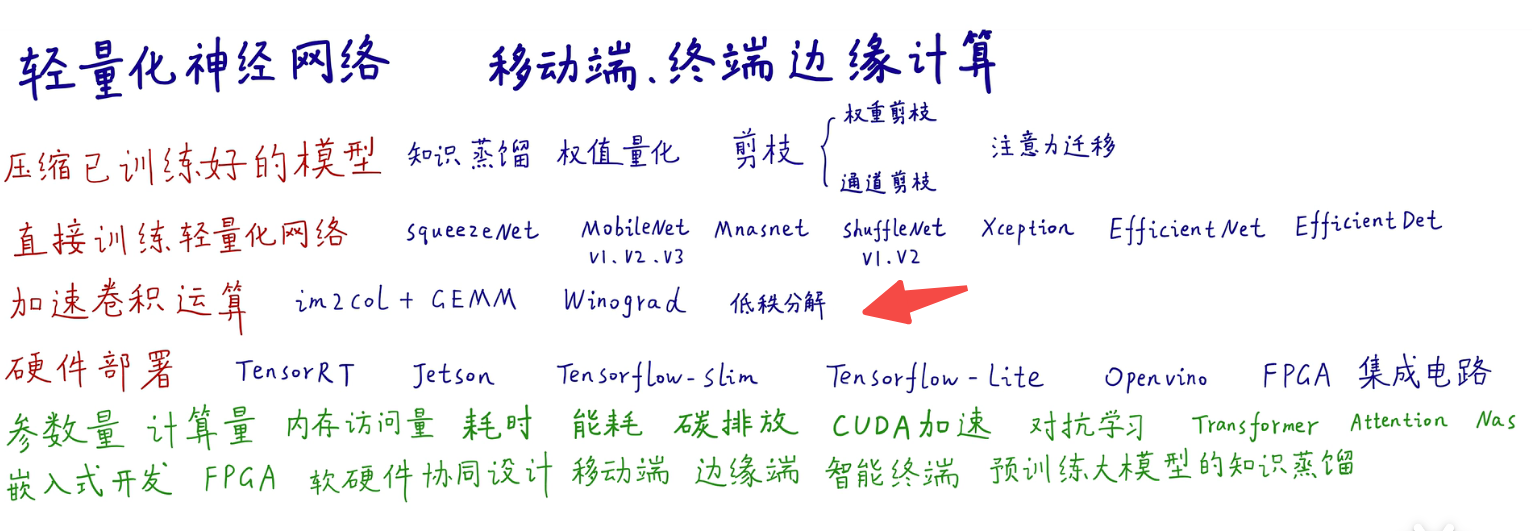 轻量化神经网络 移动端、终端边缘计算
压缩已训练好的模型 知识蒸馏 权值量化 剪枝 { 权重剪枝 通道剪枝 注意力迁移
直接训练轻量化网络 squeezeNet MobileNet Mnasnet shuffleNet Xception EfficientNet EfficientDet
V1.V2.V3 V1.V2
加速卷积运算 im2col + GEMM Winograd 低秩分解
硬件部署 TensorRT Jetson Tensorflow-slim Tensorflow-Lite Openvino FPGA 集成电路
参数量 计算量 内存访问量 耗时 能耗 碳排放 CUDA加速 对抗学习 Transformer Attention Nas
嵌入式开发 FPGA 软硬件协同设计 移动端 边缘端 智能终端 预训练大模型的知识蒸馏